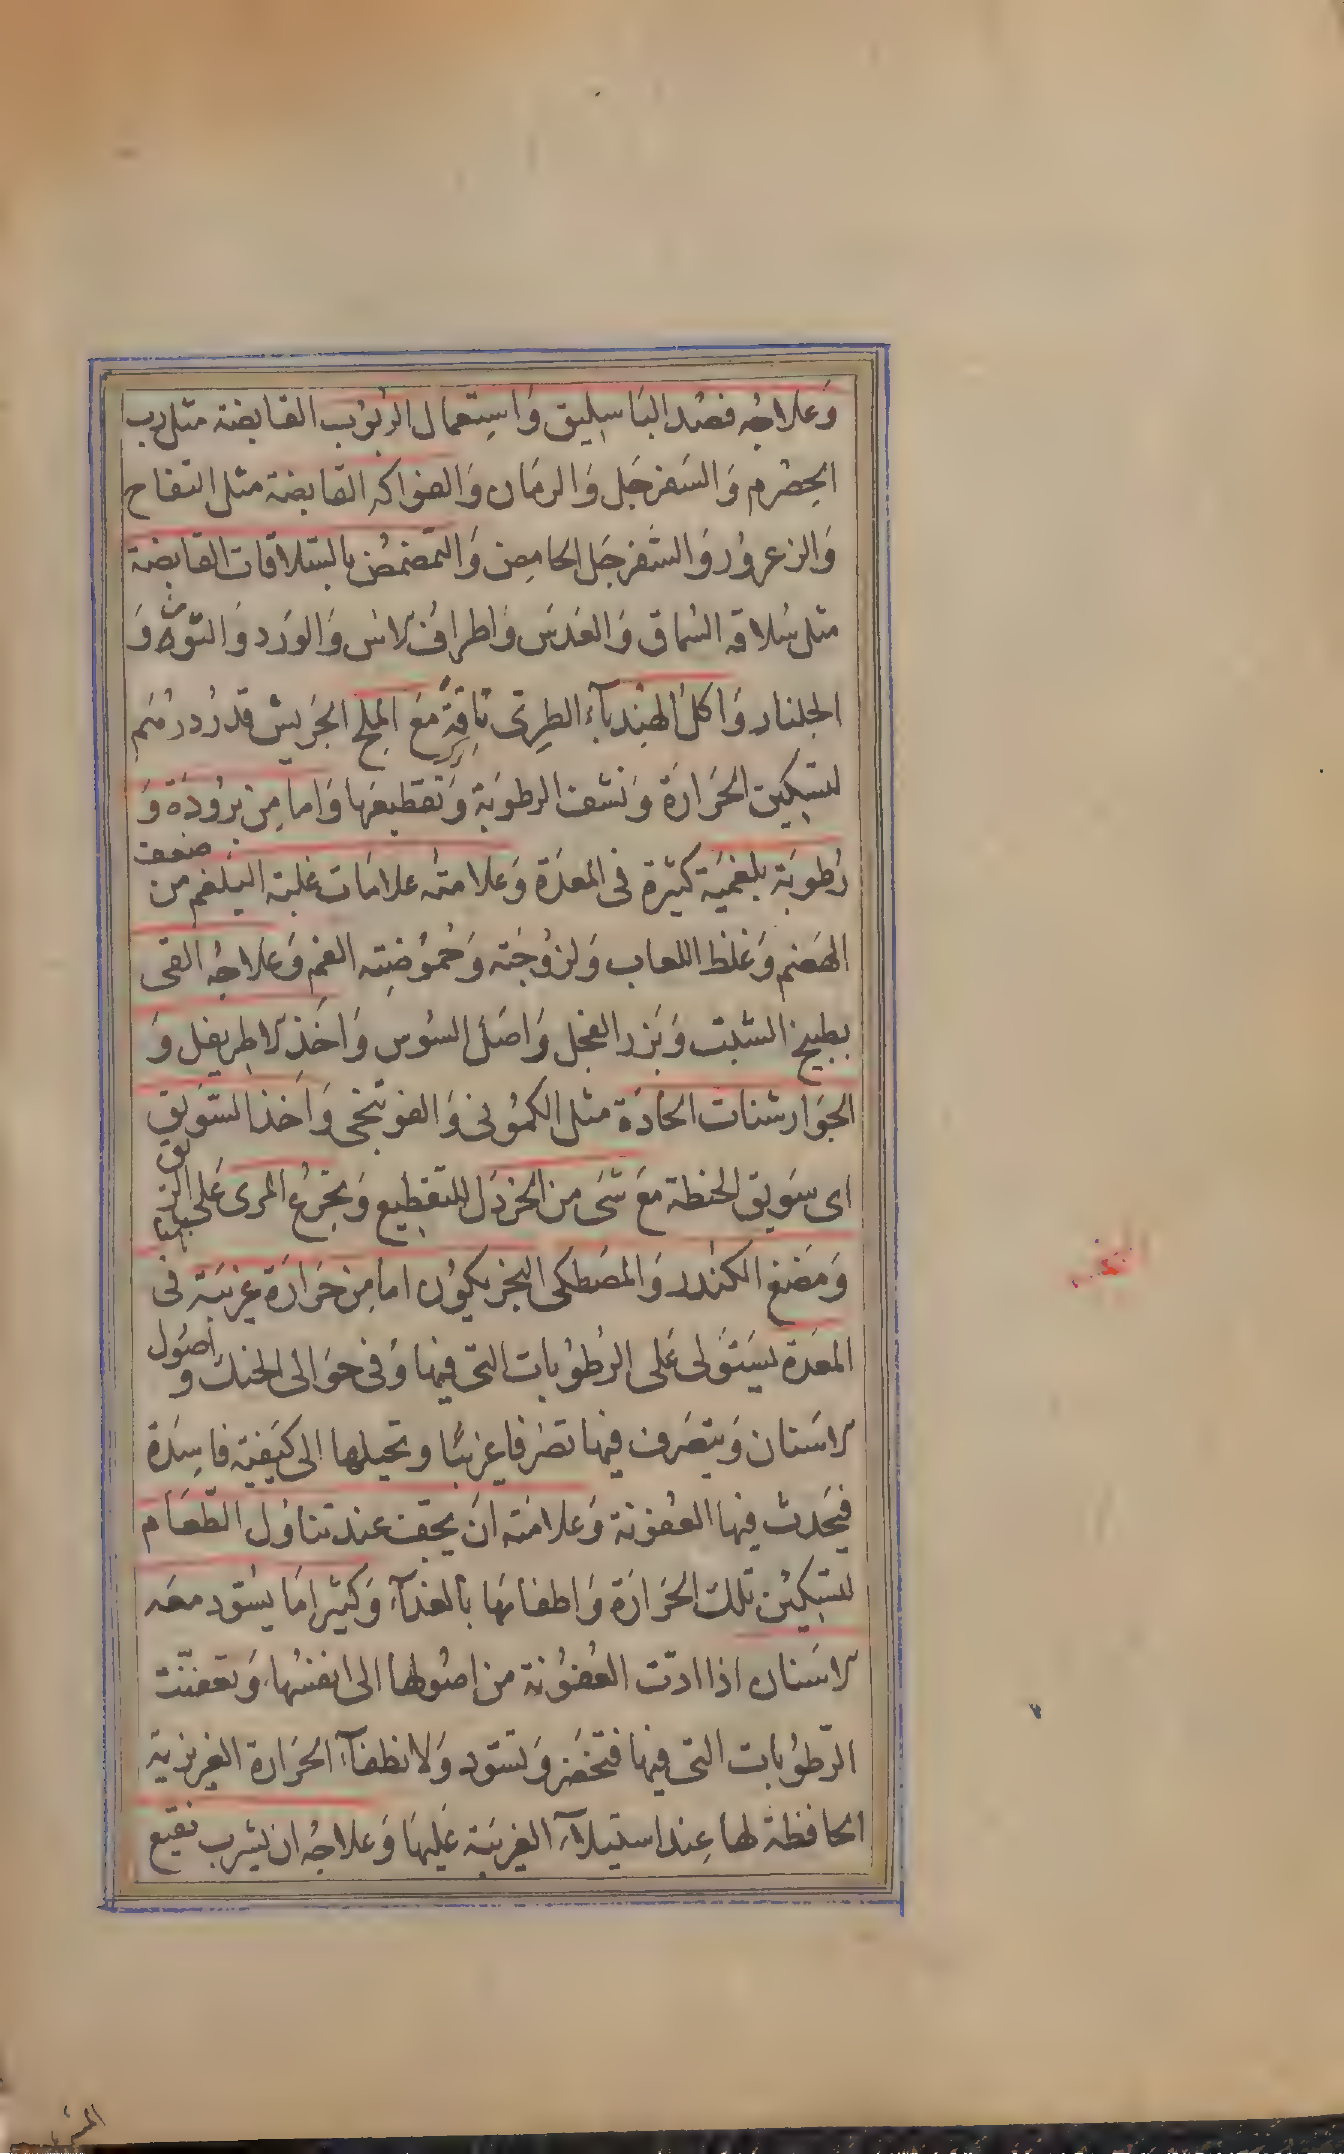 وَعلاجُه فصْد البَاسِليق وَاستعمال الرُبوْب القابضة مثل رب
الحِصْرم وَالسَفرجَل وَالرمَان وَالفواكه القابضة مثل التفاح
وَالزعرور وَالسَفرجَل الحامِض وَالتمضمُض بالسّلاقات القابضة
مثل سُلاقه السُماق وَالعَدسَ وَاطرافْ الاس وَالوَرد وَالتوت وَ
الجلنار وَاكل الهنْدبآء الطرِى بَاقةً مَعَ الملح الجَريش قدر درْهَم
لتسكين الحَرارَة وَنشف الرطوبَة وَتقطيعهَا وَاما مِن برُودَة وَ
رُطوبَة بلغميَة كثيرة فى المَعدَة وَعلامته علامَات غلبة البَلغم من ضعف
الهَضم وَغلظ اللعاب وَلزوْجَته وَحُموْضِته الفم وَعلاجُه القى
بطبيخ الشبت وَبَزر الفجل وَاصَل السُوس وَاخَذ الاطريفل وَ
الجَوارشنات الحَادَة مثل الكمُونى وَالفوتنجى وَاخذ السَويق
اى سَويق الحنطة مَعَ شَى من الخردَل للتقطيع وَتجَرُع المرى عَلى الريق
وَمَضغ الكندر وَالمصَطكى البخر يكوُن اما مِن حَرارَة غريبَة فى
المعَدة يسَتَولى عَلى الرُطوْبات التى فيها وَفى حوَالى الحنك وَ اصُول
الاسَنان وَيتصَرف فيها تصَرفا غريبًا وتحيلها الى كيَفية فاسِدَة
فيَحدث فيها العفونة وَعلامَته اَن يخف عند تناوُل الطّعَام
لتسكيْن تلك الحَرارَة وَاطفائهَا بالغذآء وَكثيرا مَا يسُود معَه
الاسَنان اذا ادّت العُفوْنة من اصُولها الى انفسُهَا وَتعفنّت
الرّطوْبات التى فيها فتخضَر وَتسود وَلانطفآء الحَرارة الغريزية
الحافظة لها عِند استيلآء الغريبَة عَليهَا وَعلاجُه ان يشرب نقيع